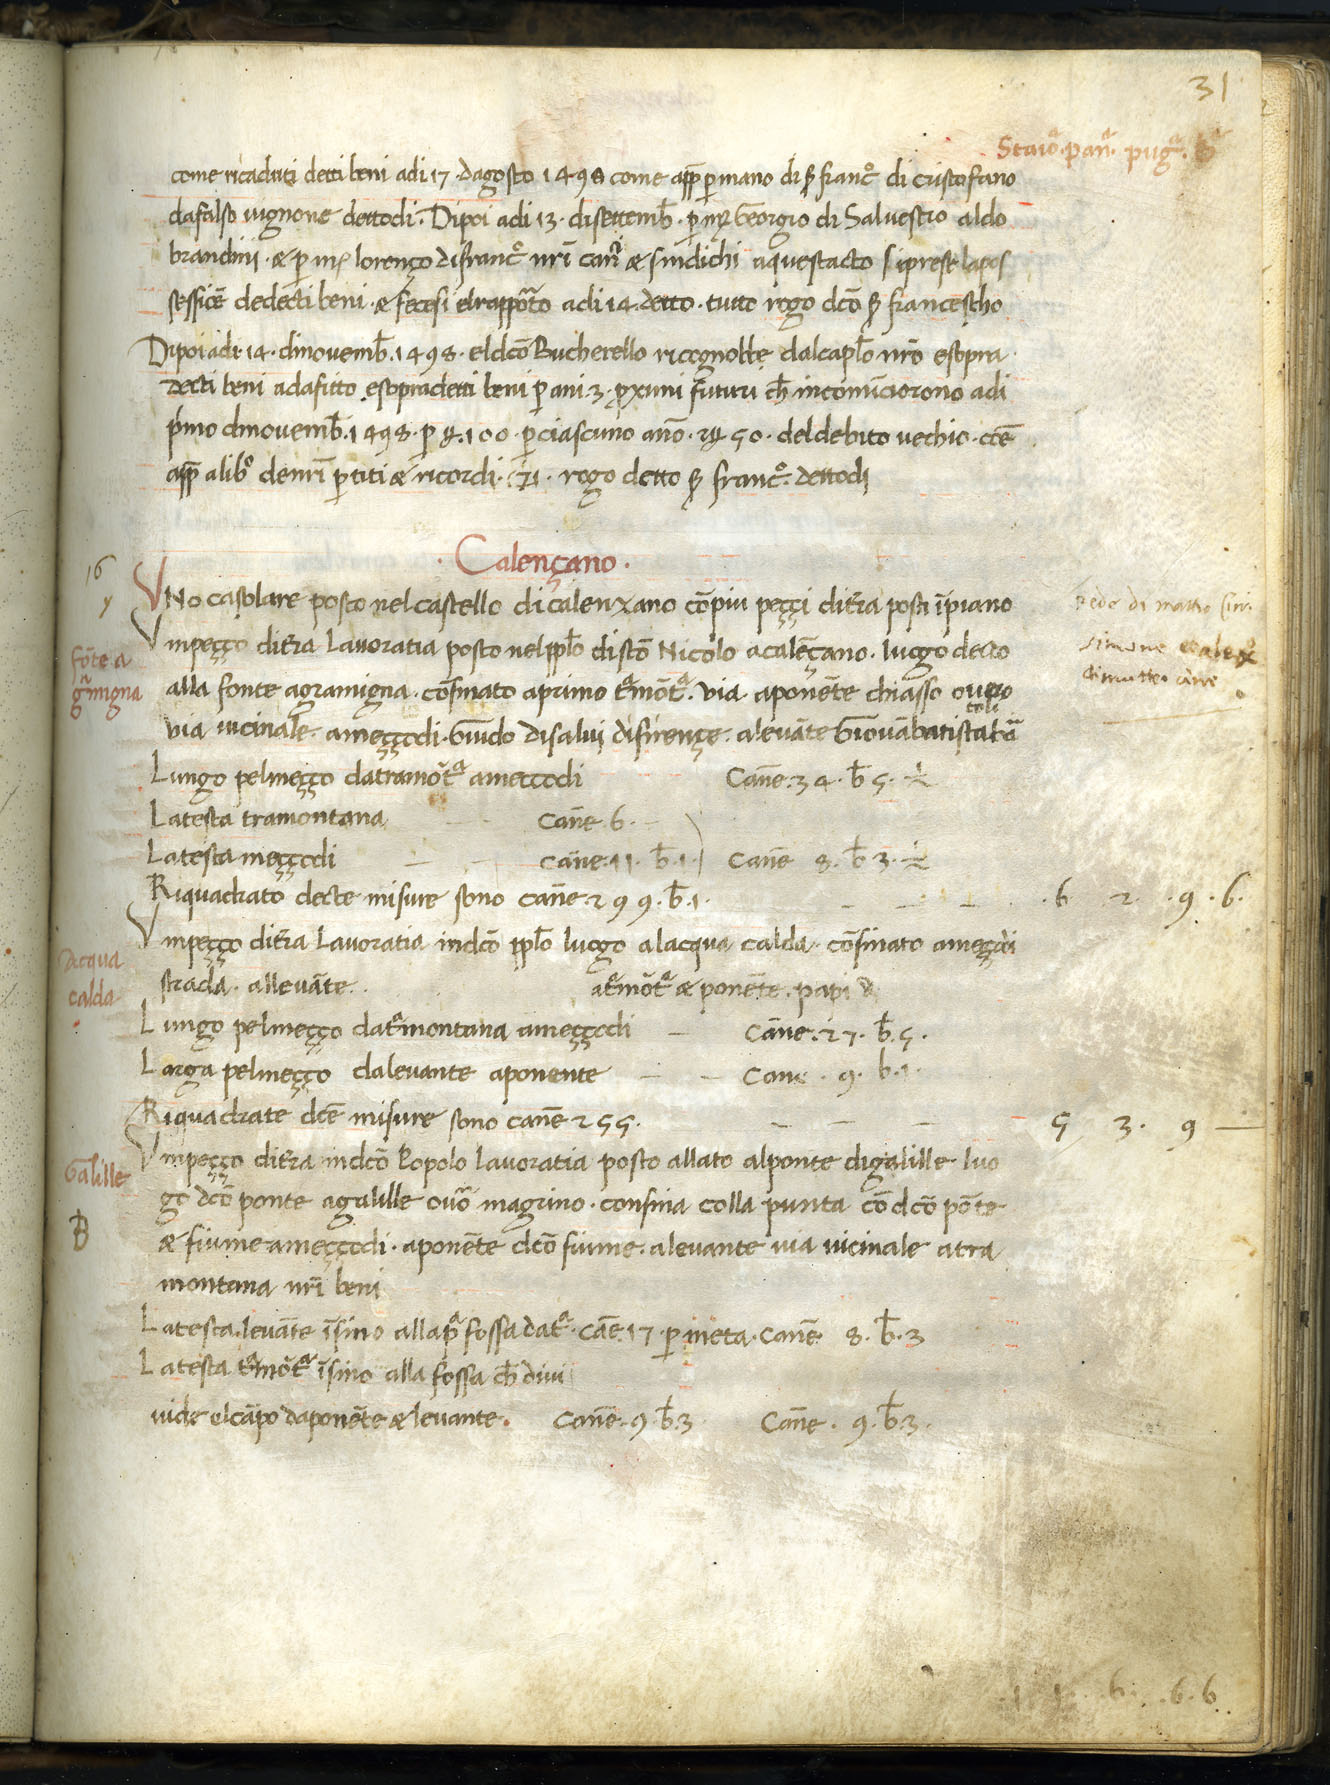 31
Staio͂. pan͂. pug͂. b͂
come ricaduti detti beni adi 17 dagosto 1498 come app̄ p̄ mano di S͂ franc͂o di cristofano
dafalso uignone dettodi. Dipoi adi 13. disettemb̄. p̄ m͂ Georgio di Saluestro aldo
brandini. & p̄ m͂ lorenço difranc͂o nr̄i can͂ & sindichi aquestacto si prese lapos
sessiōe dedecti beni. & fecesi elrapporto adi 14. detto. tutto rogo dcō S͂ francescho
Dipoi adi 14. dinouemb̄. 1498. eldcō Bucherello ricognobbe dalcapl̄o nr̄o esopra
decti beni adafitto esopradetti beni p̄ ani. 3. p̄xumi futuri ch̄ incōmciorono adi
p̄mo dinouemb̄. 1498. p̄ 100. p̄ ciascuno ano̅. 50. deldebito uechio. cōe
app̄ alib͂o denr̄i p̄titi & ricordi. 71. rogo detto S͂ franc͂o. dettodi
. Calençano .
16
y
VNo casolare posto nel castello di calenzano cō piu peççi di tr̄a posti ī piano
fōte a
gr̄amigna
Vmpeçço di tr̄a Lauoratia posto nelppl̄o di sc̄o Nicolo acalēçano. luogo decto
alla fonte agramigna. cōfinato aprimo tr̄amōt͂a. via. aponēte chiasso ouero
via uicinale. ameççodi. Guido disalui difirençe. aleuāte Giouābatista
Lungo pelmeçço datramōt͂a ameççodi Can̄e. 34. b̄ 5.
Latesta tramontana Can̄e. 6.
Latesta meççodi Can̄e. 11. b̄. 1. Can̄e 8. b̄ 3.
Riquadrato decte misure sono can̄e. 299. b̄. 1. . 6 2. . 9. 6.
acqua
calda
Vmpeçço di tr̄a Lauoratia indcō ppl̄o luogo alacqua calda. cōfinato ameççodi
strada. alleuāte. atr̄amōt͂a & ponēte. papi
Lungo pelmeçço datr̄amontana ameççodi Can̄e. 27. b̄. 5.
Larga pelmeçço daleuante aponente Cane. 9. b. 1.
Riquadrate dcē misure sono can̄e 255. 5 3. 9 —
Galille
B
Vmpeçço di tr̄a indcō Popolo Lauoratia posto allato alponte digalille luo
go dcō ponte agalille ouō magrino. confina colla punta cō dcō pōte
& fiume ameççodi. aponēte dcō fiume. aleuante uia uicinale atra
montana nr̄i beni
Latesta leuāte ī sino alla p͂a fossa datr͂a. cāe 17. p̄ meta. Can̄e 8. b̄. 3
Latesta tr̄amōt͂a ī sino alla fossa ch̄ diui
uide elcāpo daponēte & leuante. Can̄e. 9. b̄. 3 Can̄e. 9. b̄. 3.
6. 6